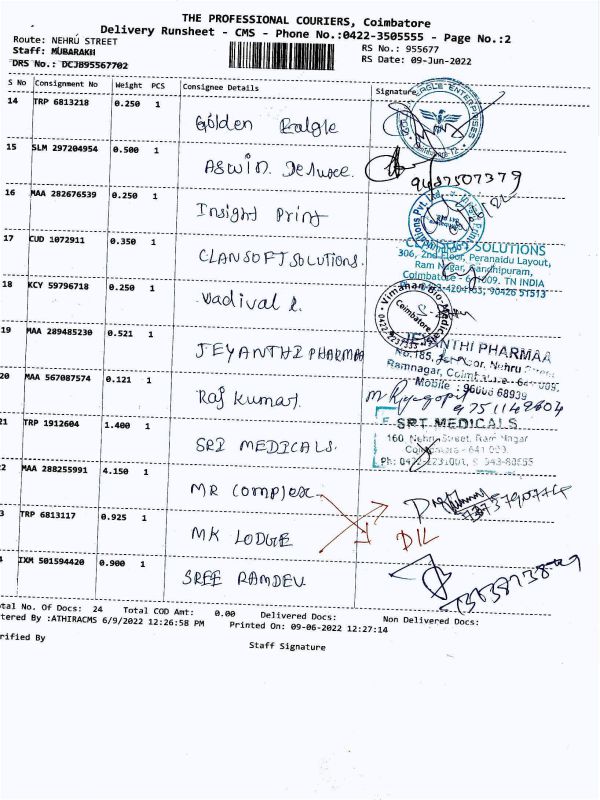 THE PROFESSIONAL COURIERS, Coimbatore
Delivery Runsheet - CMS - Phone No.:0422-3505555 - Page No.:2
Route: NEHRU STREET
RS No.: 955677
Staff: MUBARAKH
RS Date: 09-Jun-2022
DRS No.: DCJ895567702
S No Consignment No Weight PCS Consignee Details Signature
14 TRP 6813218 0.250 1 Golden Ealgle
15 SLM 297204954 0.500 1 Aswin. Deluxe.
9487507379
16 MAA 282676539 0.250 1 Insight Print
17 CUD 1072911 0.350 1 CLANSOFT SOLUTIONS.
CLANSOFT SOLUTIONS
306, 2nd Floor, Peranaidu Layout,
Ram Nagar, Gandhipuram,
Coimbatore - 641009. TN INDIA
90426 51513
18 KCY 59796718 0.250 1 Vadival R.
Vimahan Bio-Medicals
Coimbatore
19 MAA 289485230 0.521 1 JEYANTHI PHARMAA
JEYANTHI PHARMAA
No.185, Nehru Street
Ramnagar, Coimbatore - 641 009.
Mobile : 96006 68939
20 MAA 567087574 0.121 1 Raj Kumar.
9751149604
21 TRP 1912604 1.400 1 SRI MEDICALS.
SRI MEDICALS
160, Nehru Street, Ram Nagar
Coimbatore - 641 009.
22 MAA 288255991 4.150 1 MR Complex
23 TRP 6813117 0.925 1 MK LODGE
D/L
24 IXM 501594420 0.900 1 SREE RAMDEV
Total No. Of Docs: 24 Total COD Amt: 0.00 Delivered Docs: Non Delivered Docs:
tered By :ATHIRACMS 6/9/2022 12:26:58 PM Printed On: 09-06-2022 12:27:14
rified By
Staff Signature